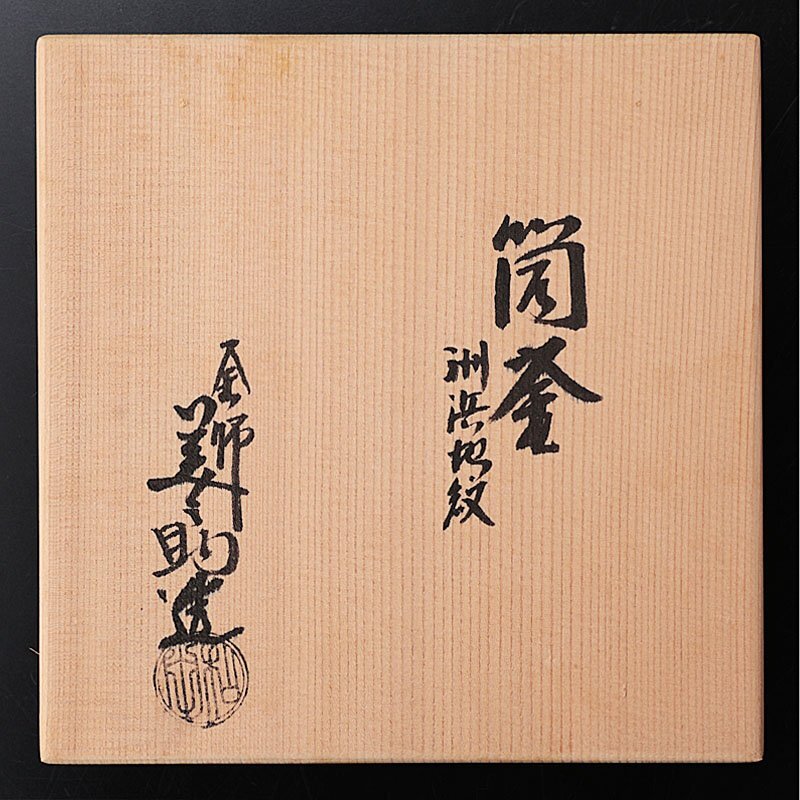 筒釜
洲浜地紋
釜師
美之助造